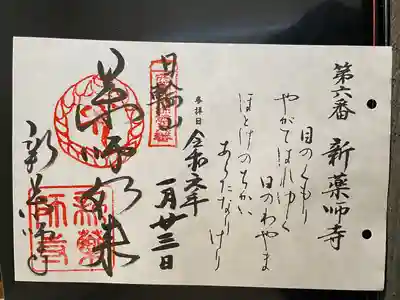 第六番 新薬師寺
目のくもり
やがてはれゆく
日のわやま
ほとけのちかい
あらたなりけり
参拝日
令和六年
一月廿三日
日輪山
薬師如来
新薬師寺